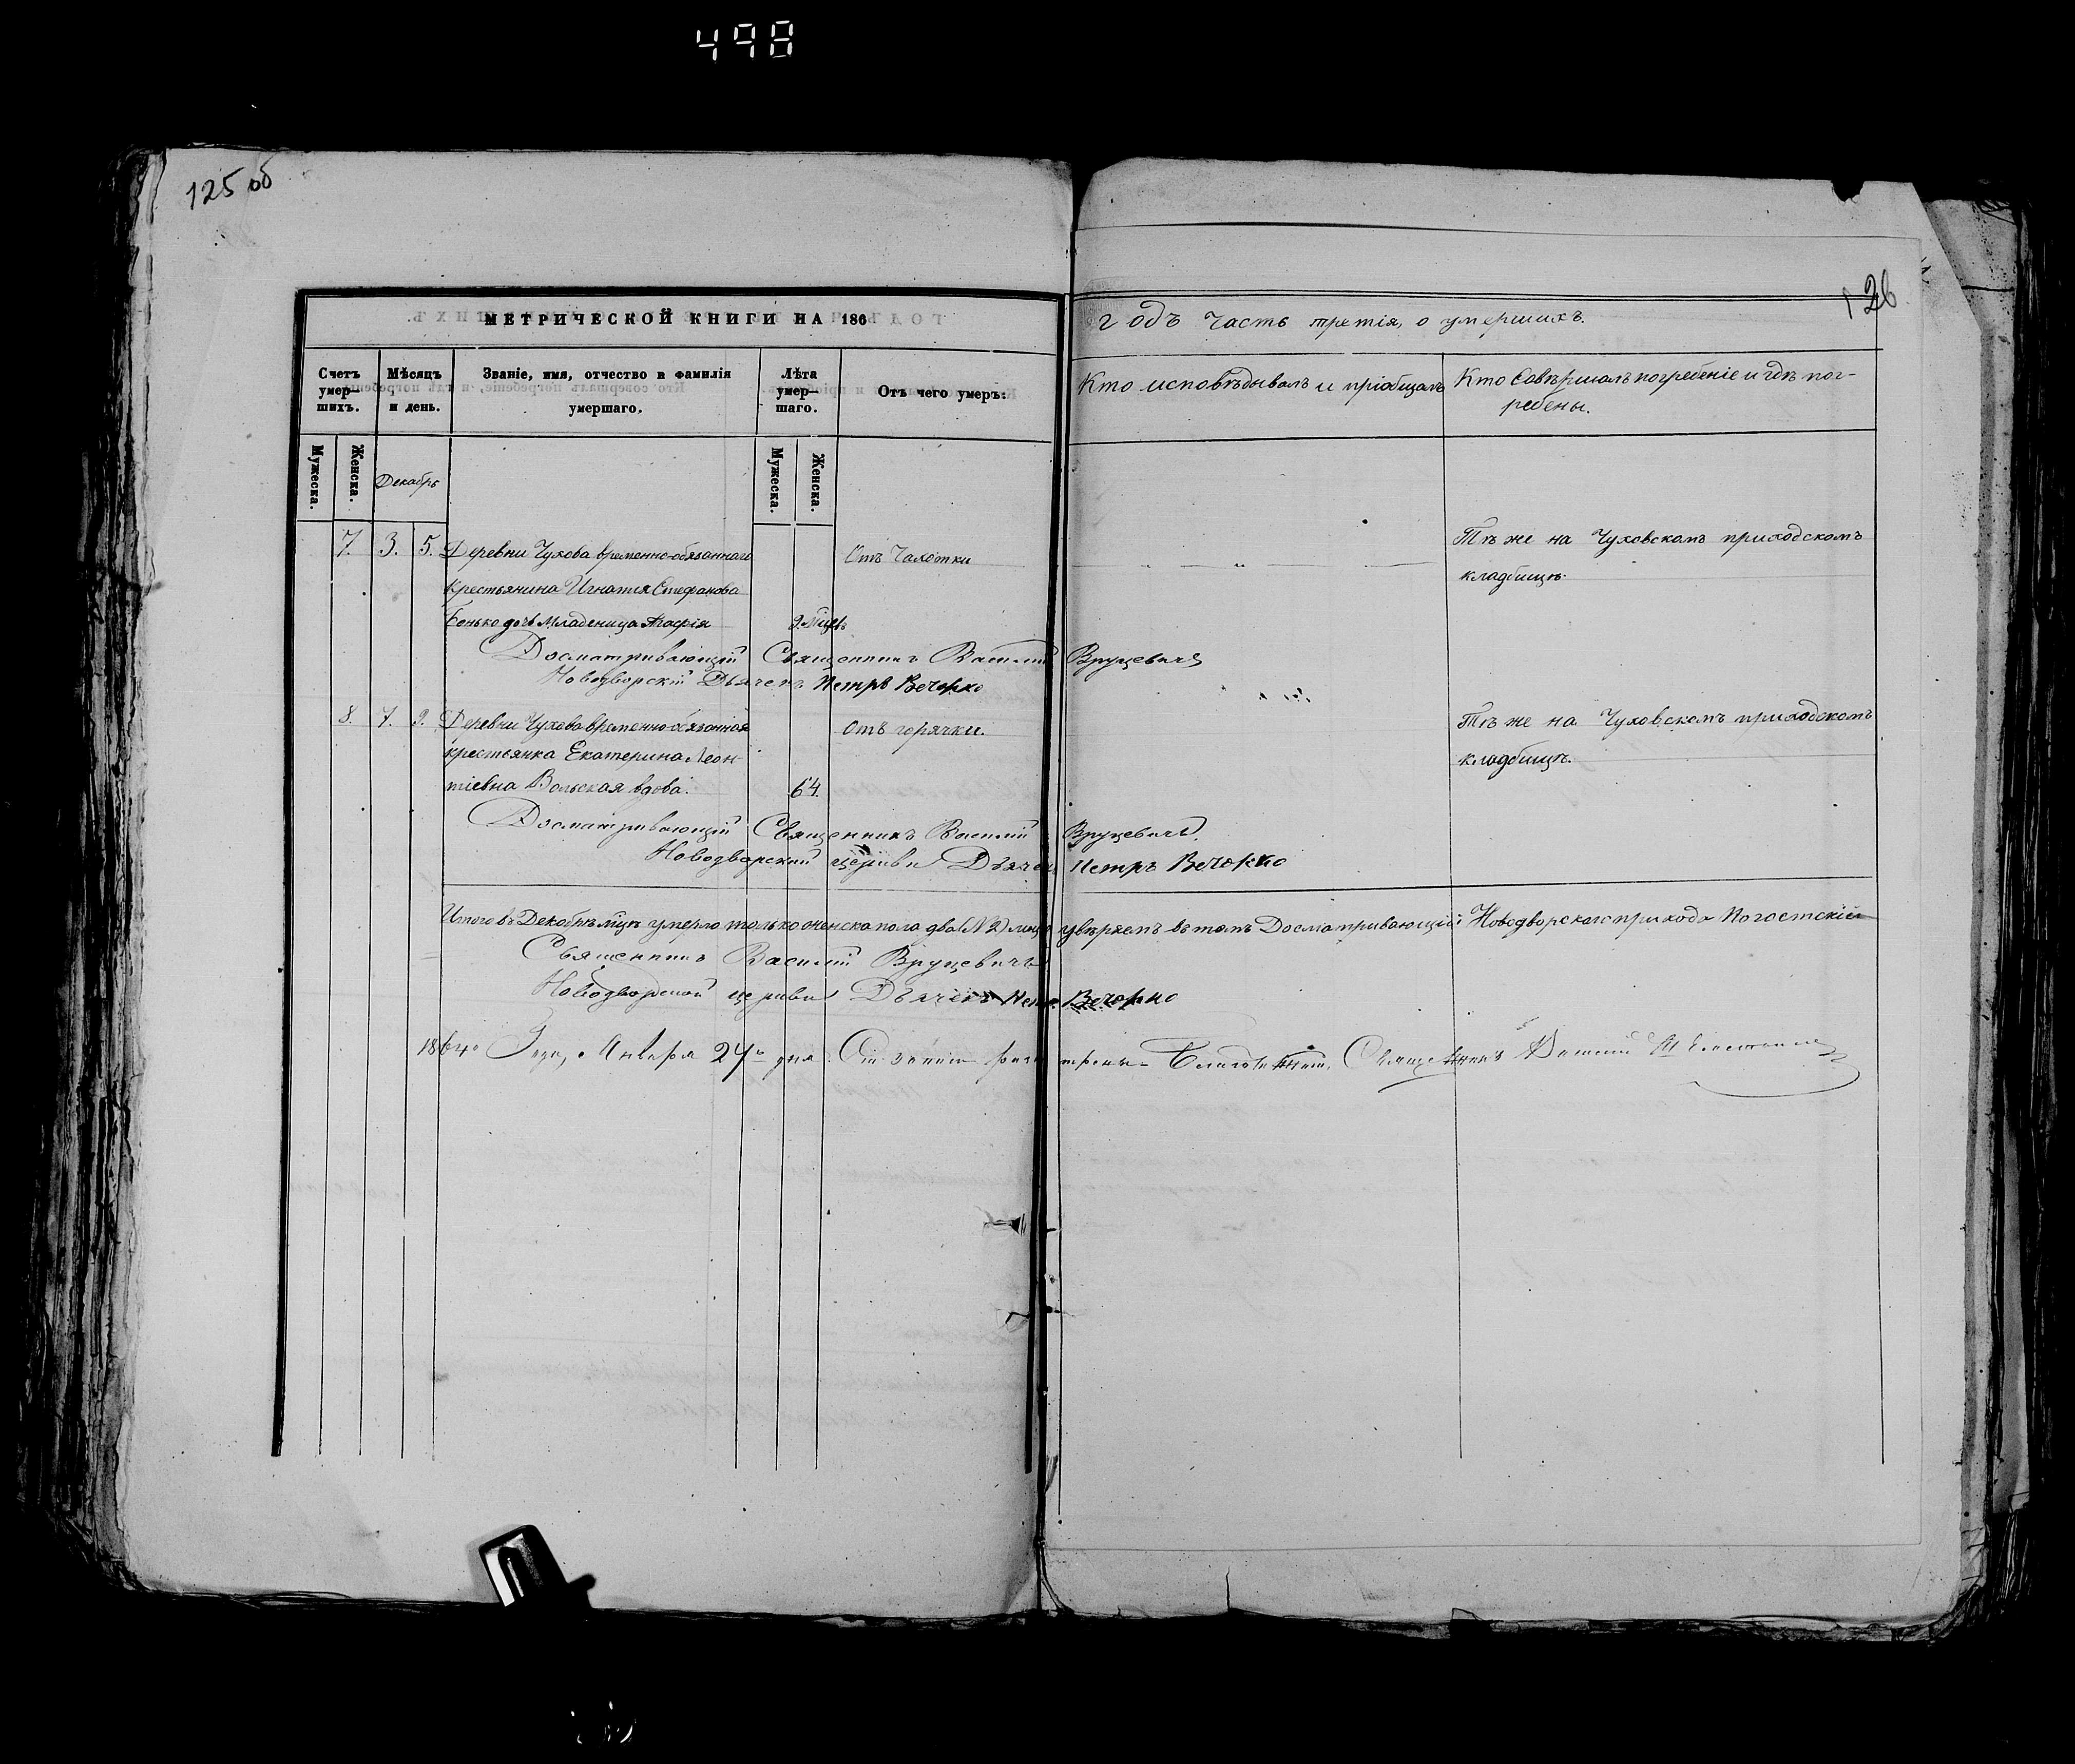 498
125 об
126
МЕТРИЧЕСКОЙ КНИГИ НА 186
годъ часть третія, о умершихъ.
Счетъ умер-шихъ.
Мѣсяцъ и день.
Званіе, имя, отчество и фамилія умершаго.
Лѣта умер-шаго.
Отъ чего умеръ:
Кто исповѣдывалъ и пріобщалъ
Кто Совершалъ погребеніе и гдѣ пог-
ребены.
Мужеска.
Женска.
Декабрь
Мужеска.
Женска.
7. 3. 5. Деревни Чухова временно-обязаннаго
Отъ Чахотки
Тѣ же на Чуховскомъ приходскомъ
крестьянина Игнатія Стефанова
кладбищѣ.
Бонько дочь Младеница Агафія
Досматривающій Священникъ Василій Вруцевичъ
Новодворскій Дьячекъ Петръ Вечорко
8. 7. 9. Деревни Чухова временно-обязанная
отъ горячки.
Тѣ же на Чуховскомъ приходскомъ
крестьянка Екатерина Леон
кладбищѣ.
тіевна Вольская вдова. 64.
Досматривающій Священникъ Василій Вруцевичъ.
Новодворской церкви Дьячекъ Петръ Вечорко
Итого въ Декабрѣ мцѣ умерло только женска пола два (№ 2) лица увѣряемъ въ томъ Досматривающій Новодворскаго прихода Погостскій
Священникъ Василій Вруцевичъ
Новодворской церкви Дьячекъ Петръ Вечорко
1864го Года, Января 24го дня. Благочинный, Священникъ Василій